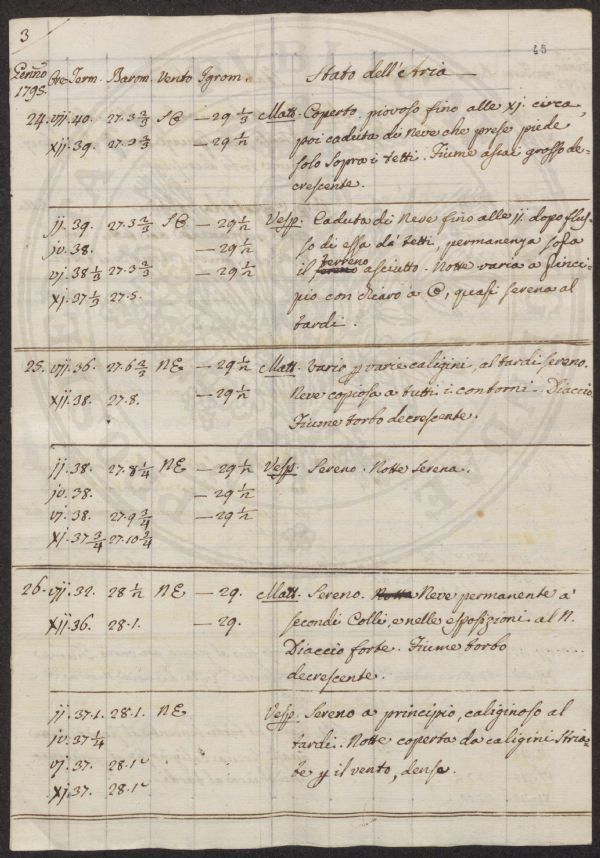 3
45
Genn.o 1795. Ore Term. Barom. Vento Igrom. Stato dell'Aria
24. vij. 40. 27.3 2/3 — 29 1/3 Matt. Coperto, piovoso fino alle xj. circa,
xij. 39. 27.3 2/3 — 29 1/2 poi caduta di Neve che prese piede
solo sopra i tetti. Fiume assai grosso de=
crescente.
ij. 39. 27.3 2/3 — 29 1/2 Vesp. Caduta di Neve fino alle ij. dopo flus=
iv. 38. — 29 1/2 so di essa da' tetti, permanenza sopra
vj. 38 1/3 27.3 2/3 — 29 1/2 il terreno asciutto. Notte varia a princi=
xj. 37 1/3 27.5. pio con chiaro a , quasi serena al
tardi.
25. vij. 36. 27.6 2/3 NE — 29 1/2 Matt. Vario p varie caligini, al tardi sereno.
xij. 38. 27.8. — 29 1/2 Neve copiosa a tutti i contorni. Diaccio
Fiume torbo decrescente.
ij. 38. 27.8 1/4 NE — 29 1/2 Vesp. Sereno. Notte serena.
iv. 38. — 29 1/2
vj. 38 27.9 3/4 — 29 1/2
xj. 37 3/4 27.10 3/4
26. vij. 32. 28 1/2 NE — 29. Matt. Sereno. Notte Neve permanente a'
xij. 36. 28.1. — 29. secondi Colli, e nelle esposizioni al N.
Diaccio forte. Fiume torbo
decrescente.
ij. 37.1. 28.1. NE Vesp. Sereno a principio, caliginoso al
iv. 37 1/4 tardi. Notte coperta da caligini stria=
vj. 37. 28.1 te p il vento, dense.
xj. 37. 28.1